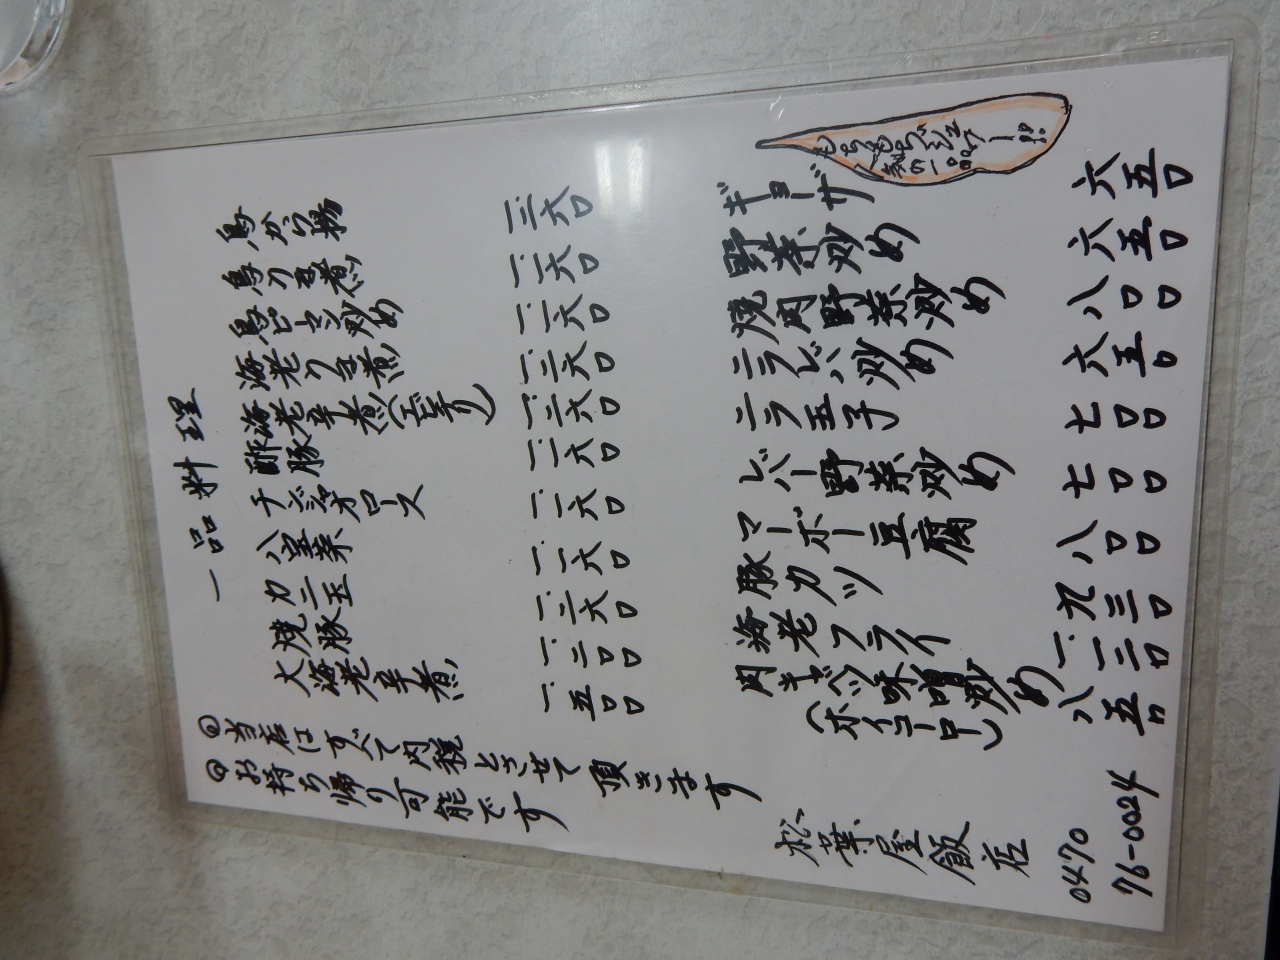 一品料理
鳥から揚 一、二六〇
鳥うま煮 一、一六〇
鳥ピーマン炒め 一、一六〇
海老うま煮 一、二六〇
海老辛煮(エビチリ) 一、二六〇
酢豚 一、一六〇
チンジャオロース 一、一六〇
八宝菜 一、一六〇
カニ玉 一、二六〇
焼豚 一、二〇〇
大海老辛煮 一、五〇〇
当店はすべて内税とさせて頂きます
お持ち帰り可能です
もちもちジューシー!!
ギョーザ 六五〇
野菜炒め 六五〇
焼肉野菜炒め 八〇〇
ニラレバ炒め 六五〇
ニラ玉子 七〇〇
レバー野菜炒め 七〇〇
マーボー豆腐 八〇〇
豚カツ 九三〇
海老フライ 一、一二〇
肉キャベツ味噌炒め 八五〇
(ホイコーロー)
松葉屋飯店
0470
76-0024